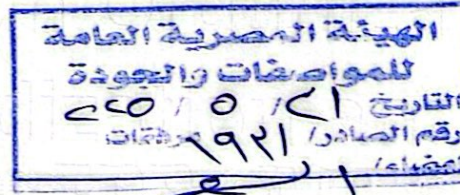 الهيئة المصرية العامة
للمواصفات والجودة
التاريخ ٢١ / ٥ /
رقم الصادر / ٢٩٣١ مرفقات
امضاء /